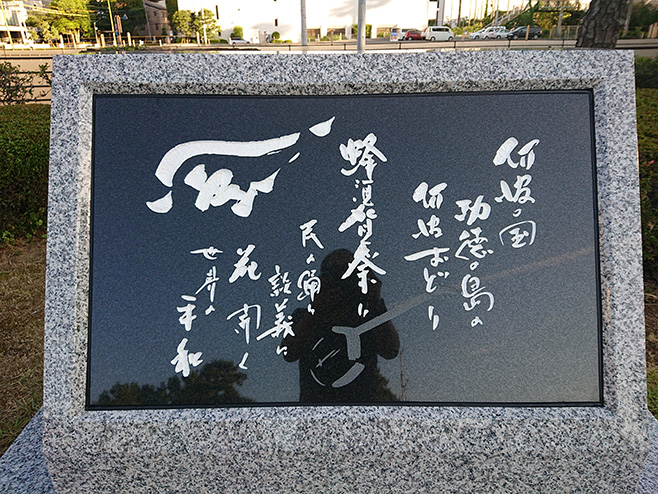 阿波の国
功徳の島の
阿波おどり
蜂須賀奏し
民の踊り
談義に
花開く
世界の
平和